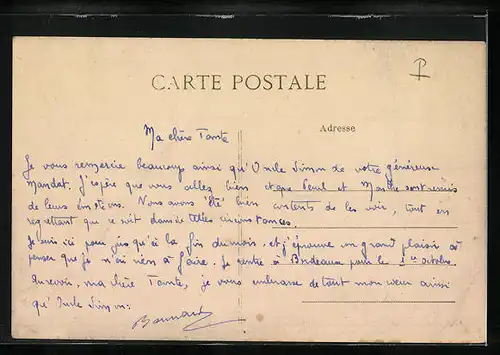 CARTE POSTALE
P
Adresse
Ma chère Tante
Je vous remercie beaucoup ainsi qu'Oncle Simon de votre généreuse
mandat. J'espère que vous allez bien et que Paul et Marthe sont remis
de leurs émotions. Nous avons été bien contents de les voir, tout en
regrettant que ce soit dans de telles circonstances.
Je suis ici pour jusqu'à la fin du mois, et j'éprouve un grand plaisir à
penser que je n'ai rien à faire. Je rentre à Bordeaux pour le 1er octobre.
Au revoir, ma chère Tante, je vous embrasse de tout mon cœur ainsi
qu'Oncle Simon.
Bernard